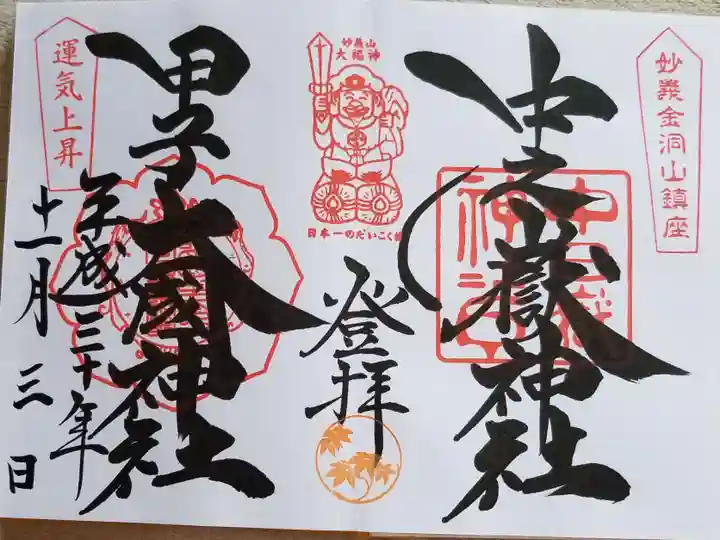 妙義金洞山鎮座
中之嶽神社
妙義山
大福神
日本一のだいこく様
登拝
運気上昇
甲子大國神社
平成三十年
十一月三日